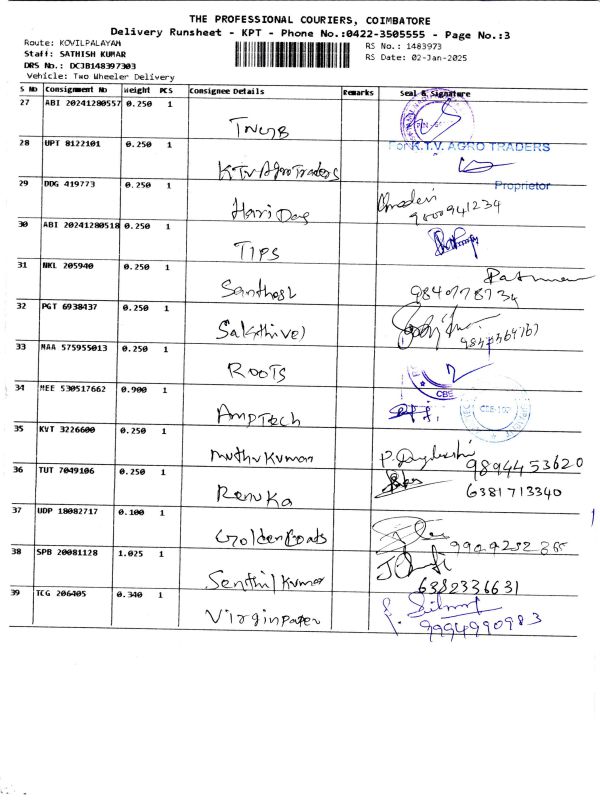 THE PROFESSIONAL COURIERS, COIMBATORE
Delivery Runsheet - KPT - Phone No.:0422-3505555 - Page No.:3
Route: KOVILPALAYAM
RS No.: 1483973
Staff: SATHISH KUMAR
RS Date: 02-Jan-2025
DRS No.: DCJB148397303
Vehicle: Two Wheeler Delivery
S No Consignment No Weight PCS Consignee Details Remarks Seal & Signature
27 ABI 20241280557 0.250 1
TNUJB
28 UPT 8122101 0.250 1 For K.T.V. AGRO TRADERS
KTV Agro Traders
Proprietor
29 DDG 419773 0.250 1
Hari Das 9000941234
30 ABI 20241280518 0.250 1
TIPS
31 NKL 205940 0.250 1
Santhosh
32 PGT 6938437 0.250 1
Sakthivel
33 MAA 575955013 0.250 1
ROOTS
CBE
34 MEE 530517662 0.900 1
AMPTECH
35 KVT 3226600 0.250 1
Muthu Kumar 9894453620
36 TUT 7049106 0.250 1
Renuka 6381713340
37 UDP 18082717 0.100 1
Golden Roads
38 SPB 20081128 1.025 1
Senthil Kumar 6382336631
39 TCG 206405 0.340 1
Virgin paper 9994990983